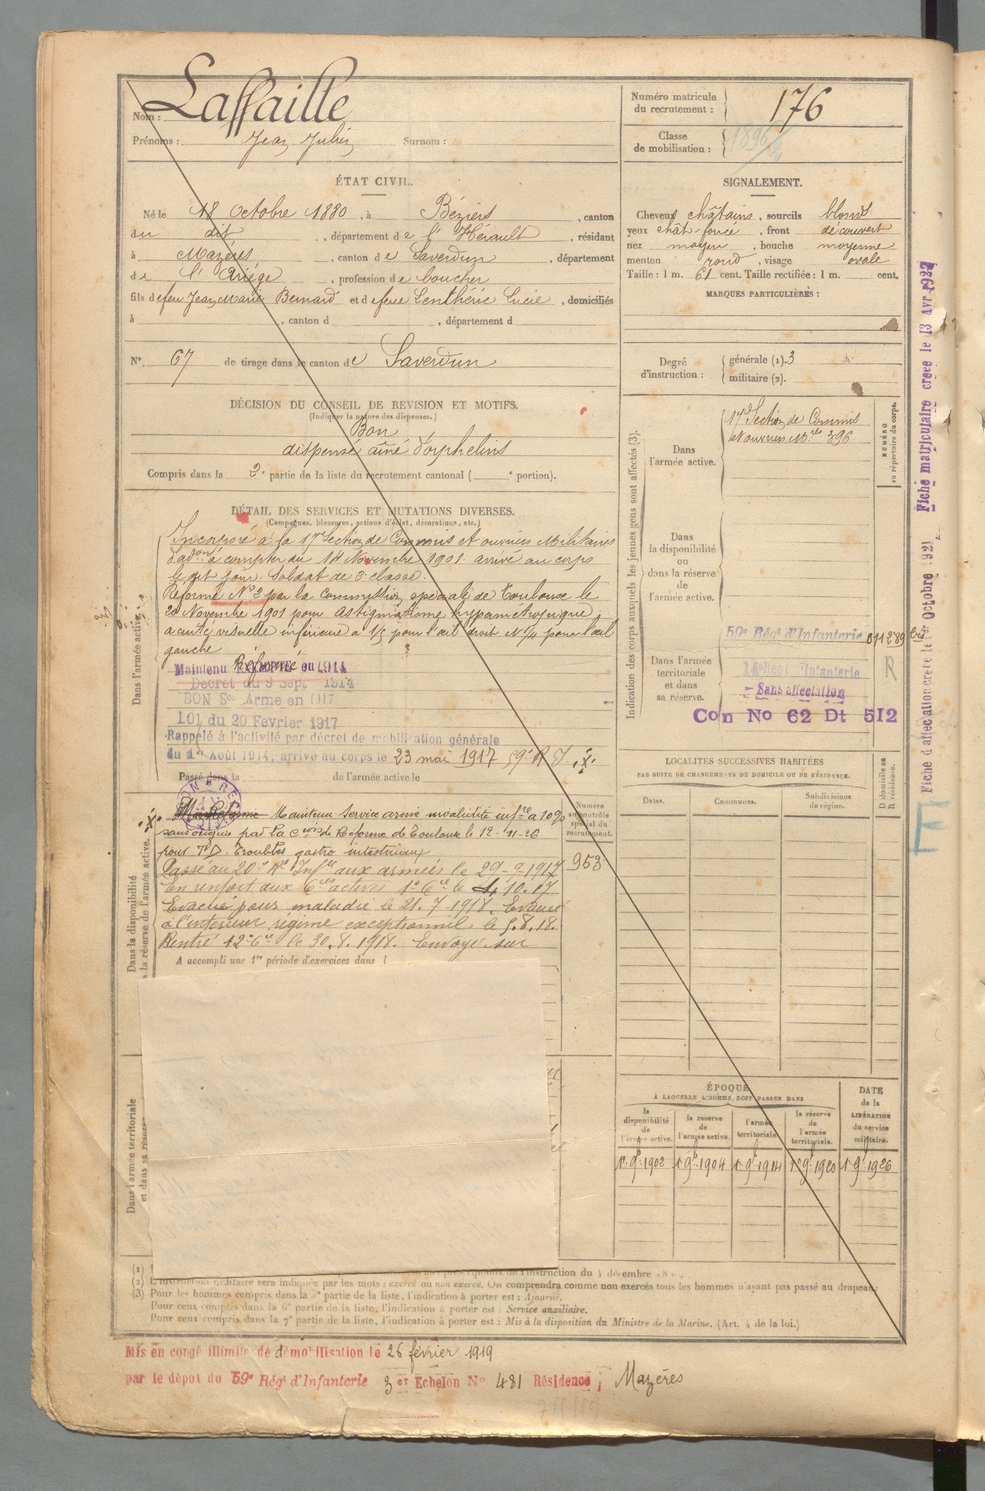 Nom : Laffaille
Prénoms : Jean Julien Surnom :
Numéro matricule du recrutement : 176
Classe de mobilisation : 1896
ÉTAT CIVIL.
Né le 18 Octobre 1880, à Béziers, canton
du dit, département de l'Hérault, résidant
à Mazères, canton de Saverdun, département
de l'Ariège, profession de boucher
fils de feu Jean Marie Bernard et de feue Lenthéric Lucie, domiciliés
à , canton d , département d
N° 67 de tirage dans le canton de Saverdun
SIGNALEMENT.
Cheveux châtains, sourcils blonds
yeux chât. foncé, front découvert
nez moyen, bouche moyenne
menton rond, visage ovale
Taille : 1 m. 61 cent. Taille rectifiée : 1 m. cent.
MARQUES PARTICULIÈRES :
Degré d'instruction : générale (1). 3
militaire (2).
DÉCISION DU CONSEIL DE REVISION ET MOTIFS.
(Indiquer la nature des dispenses.)
Bon
dispensé aîné d'orphelins
Compris dans la 2e partie de la liste du recrutement cantonal ( e portion).
DÉTAIL DES SERVICES ET MUTATIONS DIVERSES.
(Campagnes, blessures, actions d'éclat, décorations, etc.)
Dans l'armée active.
Incorporé à la 17e Section de Commis et ouvriers Militaires
d'adon à compter du 14 Novembre 1901 arrivé au corps
le dit jour. Soldat de 2e classe.
Réformé N°2 par la Commission spéciale de Toulouse le
20 Novembre 1901 pour Astigmatisme hypermétropique
acuité visuelle inférieure à 1/5 pour l'œil droit et 1/4 pour l'œil
gauche
Maintenu Réformé en 1914
Décret du 9 Sept 1914
BON Sce Armé en 1917
LOI du 20 Fevrier 1917
Rappelé à l'activité par décret de mobilisation générale
du 1er Août 1914, arrivé au corps le 23 mai 1917 59e R I.
Passé dans la de l'armée active le
Numéro au contrôle spécial du recrutement.
953
Dans la disponibilité
la réserve de l'armée active.
Maintenu Service armé invalidité infre à 10%
sans origine par la Cion de Réforme de Toulouse le 12-11-26
pour T.D. troubles gastro intestinaux
Passé au 20e Rt Infie aux armées le 29-9-1917
En renfort aux Cies actives 1e Cie le 4.10.17
Evacué pour maladie le 21.7.1918. Evacué
à l'intérieur régime exceptionnel le 5.8.18.
Rentré 12e Cie le 30.8.1918. Envoyé sur
A accompli une 1re période d'exercices dans l
Dans l'armée territoriale
et dans sa réserve
Indication des corps auxquels les jeunes gens sont affectés (3).
NUMÉRO au répertoire du corps.
Dans l'armée active.
17e Section de Commis
et ouvriers Mre 396
Dans la disponibilité ou dans la réserve de l'armée active.
Dans l'armée territoriale et dans sa réserve.
59e Régt d'Infanterie 011289 bis
R
Sans affectation
Con No 62 Dt 512
LOCALITÉS SUCCESSIVES HABITÉES
PAR SUITE DE CHANGEMENTS DE DOMICILE OU DE RÉSIDENCE.
Dates. Communes. Subdivisions de région. D domicile ou R résidence.
ÉPOQUE
À LAQUELLE L'HOMME DOIT PASSER DANS
la disponibilité de l'armée active.
la réserve de l'armée active.
l'armée territoriale.
la réserve de l'armée territoriale.
DATE de la LIBÉRATION du service militaire.
1er 9bre 1902 1er 9bre 1904 1er 9bre 1914 1er 9bre 1920 1er 9bre 1926
l'instruction du décembre
(2) L'instruction militaire sera indiquée par les mots : exercé ou non exercé. On comprendra comme non exercés tous les hommes n'ayant pas passé au drapeau.
(3) Pour les hommes compris dans la 5e partie de la liste, l'indication à porter est : Ajourné.
Pour ceux compris dans la 6e partie de la liste, l'indication à porter est : Service auxiliaire.
Pour ceux compris dans la 7e partie de la liste, l'indication à porter est : Mis à la disposition du Ministre de la Marine. (Art. 4 de la loi.)
Mis en congé illimité de démobilisation le 26 février 1919
par le dépôt du 59e Régt d'Infanterie 3 eme Echelon N° 481 Résidence ; Mazères
Fiche d'affectation créée le Octobre 1921 Fiche matriculaire créée le 13 Avr 1927
F